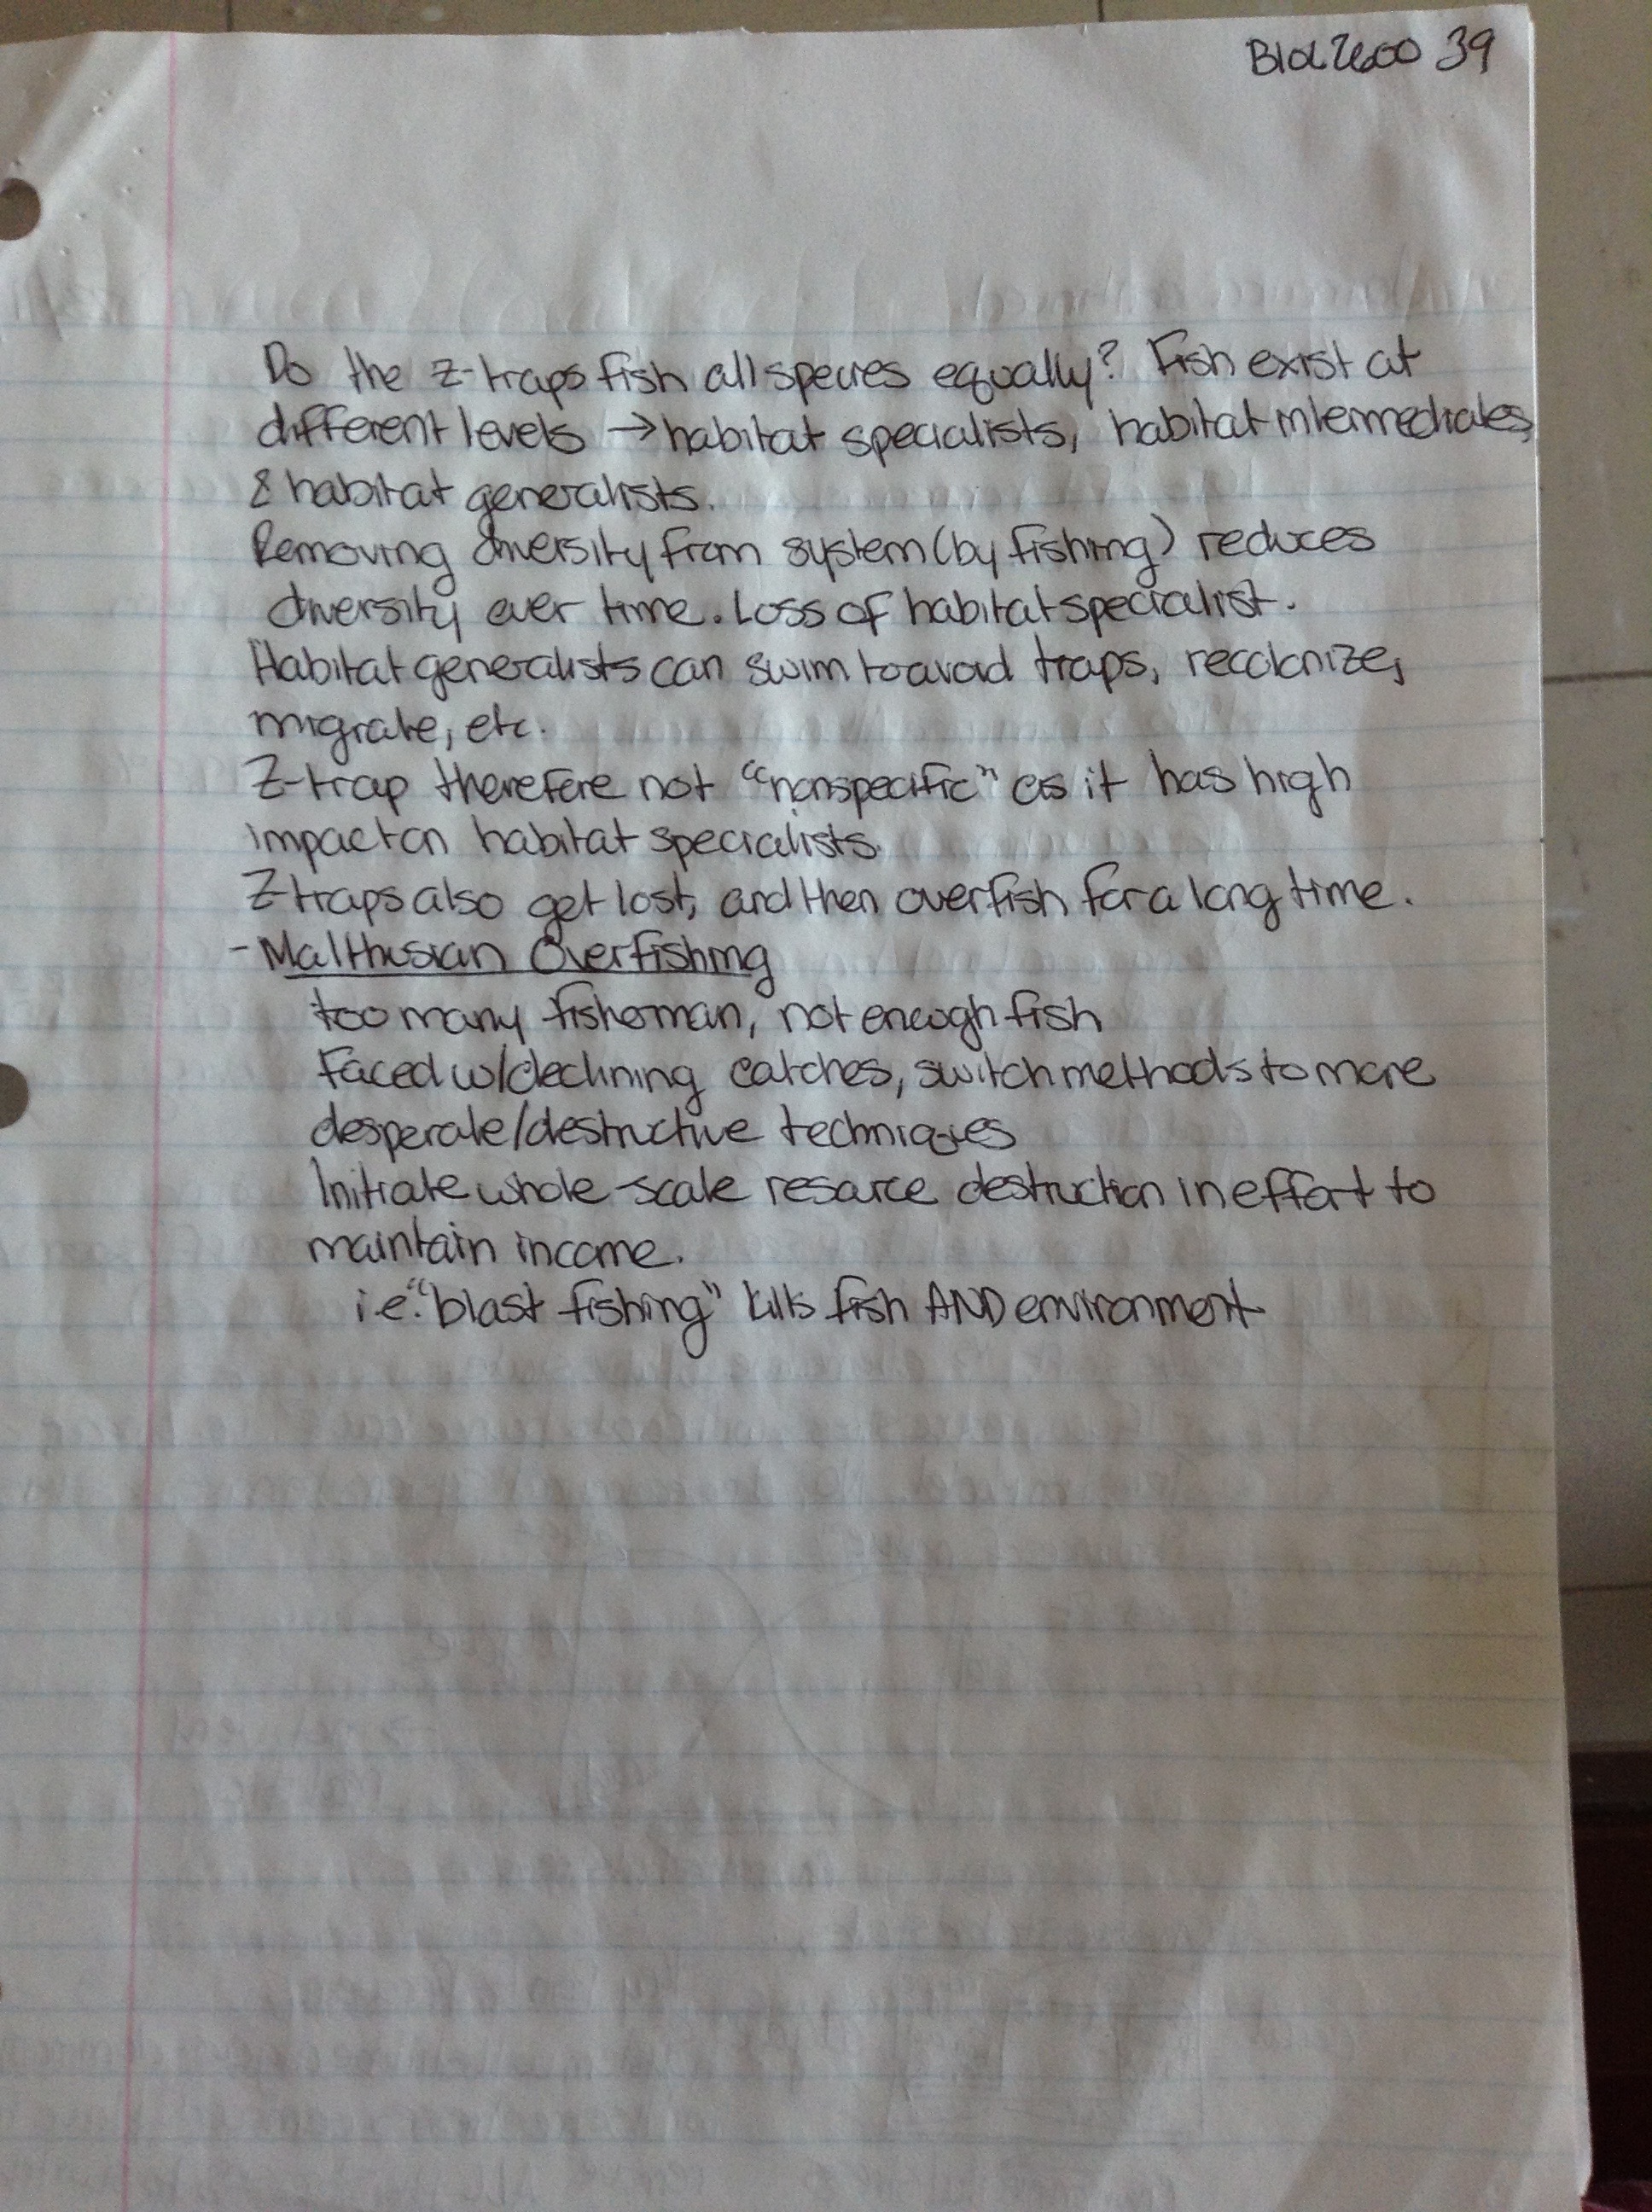 BIOL2600 39
Do the Z-traps fish all species equally? Fish exist at
different levels → habitat specialists, habitat intermediates,
& habitat generalists.
Removing diversity from system (by fishing) reduces
diversity over time. Loss of habitat specialist.
Habitat generalists can swim to avoid traps, recolonize,
migrate, etc.
Z-trap therefore not "nonspecific" as it has high
impact on habitat specialists.
Z traps also get lost, and then overfish for a long time.
- Malthusian Overfishing
too many fisherman, not enough fish
Faced w/declining catches, switch methods to more
desperate/destructive techniques
Initiate whole-scale resource destruction in effort to
maintain income.
i.e. "blast fishing" kills fish AND environment